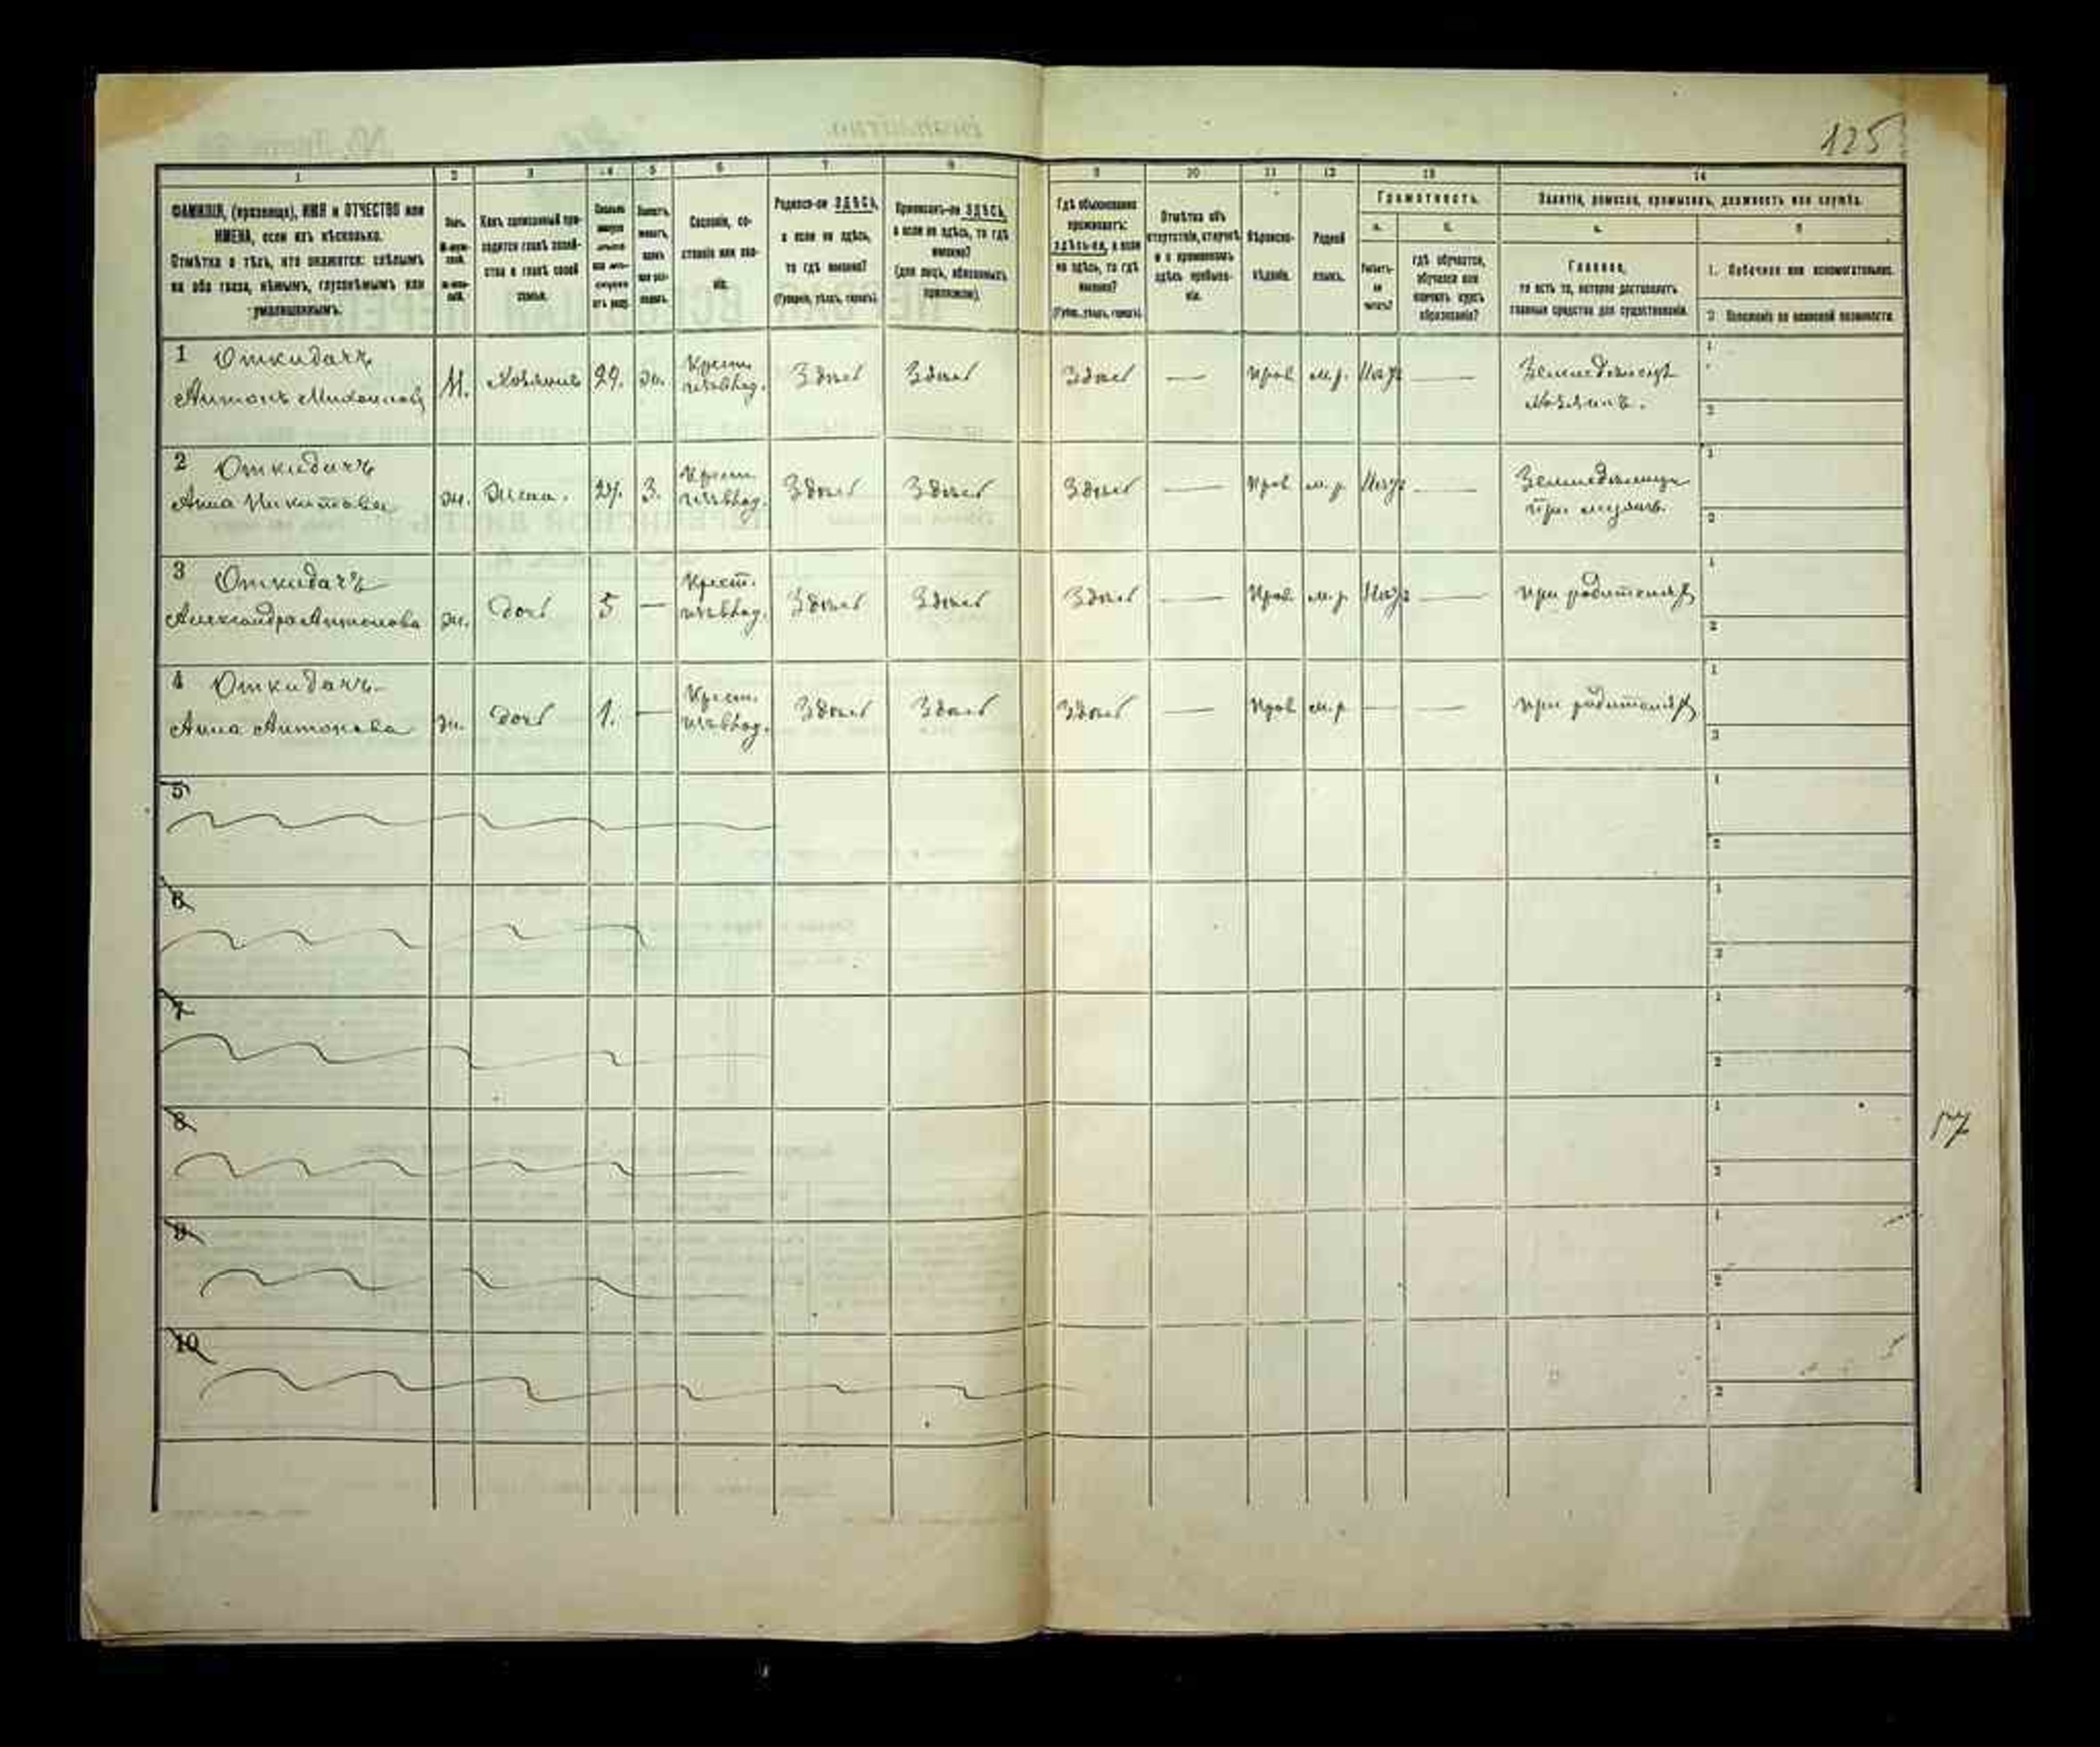 125
1 2 3 4 5 6 7 8 9 10 11 12 13 14
ФАМИЛІЯ, (прозвище), ИМЯ и ОТЧЕСТВО или
ИМЕНА, если ихъ нѣсколько.
Отмѣтка о тѣхъ, кто окажется: слѣпымъ
на оба глаза, нѣмымъ, глухонѣмымъ или
умалишеннымъ.
Полъ.
Какъ записанный при-
ходится главѣ хозяй-
ства и главѣ своей
семьи.
Сословіе, со-
стояніе или зва-
ніе.
Родился-ли ЗДѢСЬ,
а если не здѣсь,
то гдѣ именно?
(Губернія, уѣздъ, городъ).
Приписанъ-ли ЗДѢСЬ,
а если не здѣсь, то гдѣ
именно?
(для лицъ, обязанныхъ
припискою).
Гдѣ обыкновенно
проживаетъ:
здѣсь-ли, а если
не здѣсь, то гдѣ
именно?
(Губ., уѣздъ, городъ).
Отмѣтка объ
отсутствіи, отлучкѣ
и о временномъ
здѣсь пребыва-
ніи.
Вѣроиспо-
вѣданіе.
Родной
языкъ.
Грамотность.
а.
Умѣетъ-
ли
читать?
б.
гдѣ обучается,
обучался или
кончилъ курсъ
образованія?
Занятіе, ремесло, промыселъ, должность или служба.
а.
Главное,
то есть то, которое доставляетъ
главныя средства для существованія.
б
1. Побочное или вспомогательное.
2. Положеніе по воинской повинности.
1 Откидачъ
Антонъ Михайловъ
М. Хозяинъ 29. ж. Крест. Здѣсь Здѣсь Здѣсь — Прав м.р. —
Земледѣлецъ
хозяинъ.
1
2
2 Откидачъ
Анна Никитова
ж. Жена. 27. З. Крест. Здѣсь Здѣсь Здѣсь — Прав м.р. —
при мужѣ.
1
2
3 Откидачъ
Александра Антонова
ж. дочь 5 — Крест. Здѣсь Здѣсь Здѣсь — Прав м.р. —
при родителяхъ
1
2
4 Откидачъ
Анна Антонова
ж. дочь 1. — Крест. Здѣсь Здѣсь Здѣсь — Прав м.р. — —
при родителяхъ
1
2
5
1
2
6
1
2
7
1
2
8
1
2
9
1
2
10
1
2